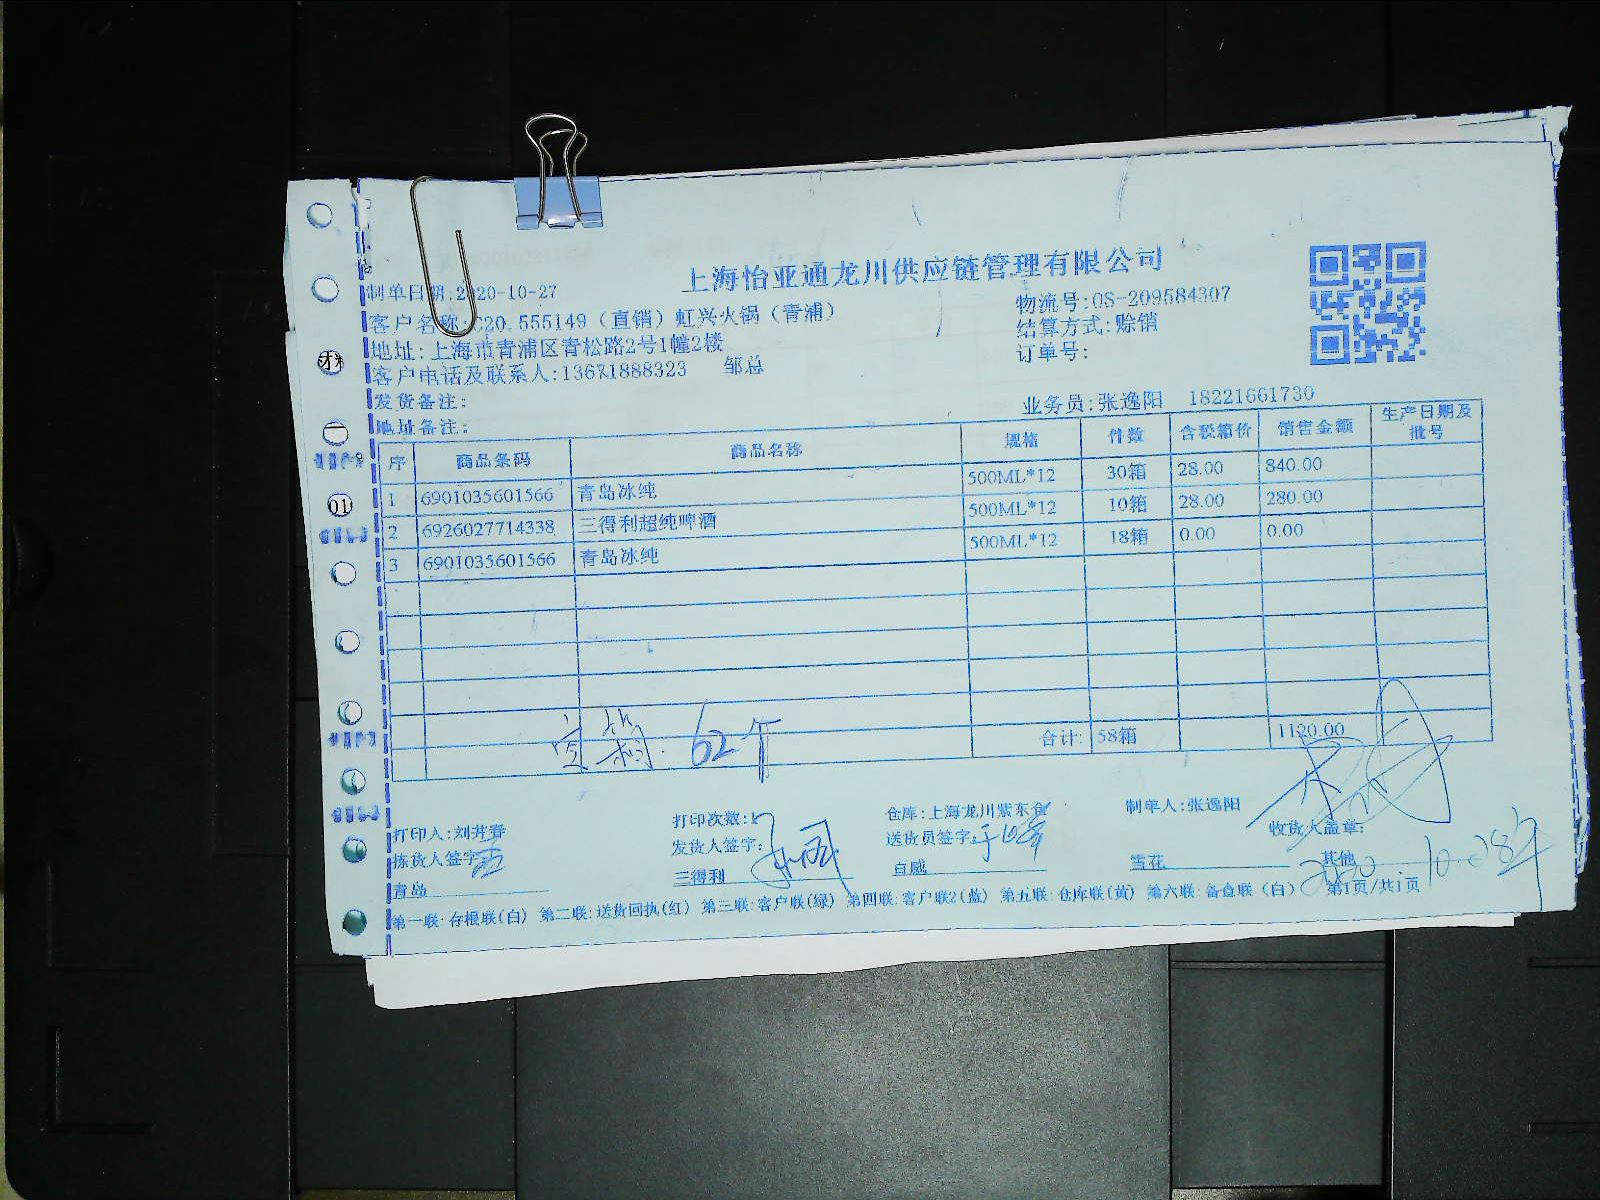 上海怡亚通龙川供应链管理有限公司
制单日期:2020-10-27
物流号:OS-209584307
客户名称:C20.555149（直销）虹兴火锅（青浦）
结算方式:赊销
地址:上海市青浦区青松路2号1幢2楼
订单号:
客户电话及联系人:13671888323 邹总
发货备注:
业务员:张逸阳 18221661730
地址备注:
序 商品条码 商品名称 规格 件数 含税箱价 销售金额 生产日期及批号
1 6901035601566 青岛冰纯 500ML*12 30箱 28.00 840.00
2 6926027714338 三得利超纯啤酒 500ML*12 10箱 28.00 280.00
3 6901035601566 青岛冰纯 500ML*12 18箱 0.00 0.00
62个
合计: 58箱 1120.00
打印人:刘开春 打印次数:1 仓库:上海龙川紫东仓 制单人:张逸阳
拣货人签字: 发货人签字: 送货员签字: 收货人盖章:
青岛 三得利 百威 雪花 其他
2020 10.28
第一联:存根联(白) 第二联:送货回执(红) 第三联:客户联(绿) 第四联:客户联2(蓝) 第五联:仓库联(黄) 第六联:备查联(白) 第1页/共1页